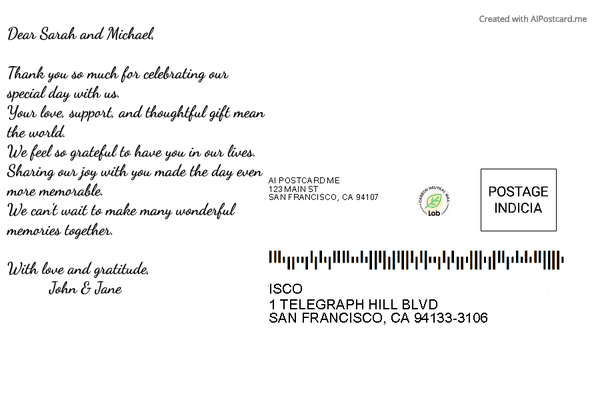 Created with AIPostcard.me
Dear Sarah and Michael,
Thank you so much for celebrating our
special day with us.
Your love, support, and thoughtful gift mean
the world.
We feel so grateful to have you in our lives.
Sharing our joy with you made the day even
more memorable.
We can't wait to make many wonderful
memories together.
With love and gratitude,
John & Jane
AI POSTCARD ME
123 MAIN ST
SAN FRANCISCO, CA 94107
CARBON NEUTRAL MAIL
Lob
POSTAGE
INDICIA
ISCO
1 TELEGRAPH HILL BLVD
SAN FRANCISCO, CA 94133-3106